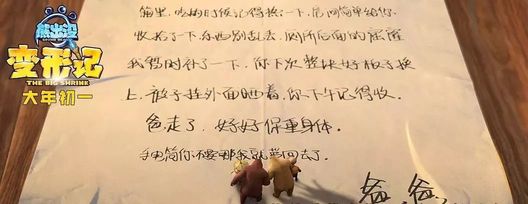 熊出没
变形记
THE BIG SHRINK
大年初一
箱里，吃的时候记得热一下，房间简单给你
收拾了一下，东西别乱丢，厕所后面的
我暂时补了一下，你下次整块好板子换
上，被子挂外面晒着，你下午记得收。
爸走了，好好保重身体。
手电筒你不要那我就带回去了。
爸爸